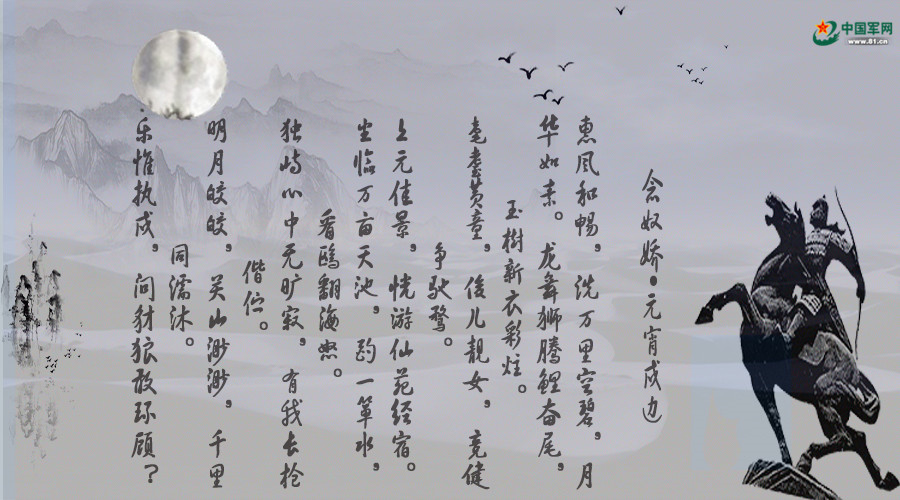 中国军网
www.81.cn
念奴娇•元宵戍边
惠风和暢，洗万里空碧，月
华如素。龙舞狮腾鲤奋尾，
玉樹新衣彩炷。
耄耋黄童，俊儿靓女，竞健
争驰骛。
上元佳景，恍游仙苑经宿。
坐临万亩天池，酌一箪水，
看鸥翻海怒。
独峙心中无旷寂，有我长枪
偕位。
明月皎皎，关山渺渺，千里
同濡沐。
乐惟执戍，问豺狼敢环顾？